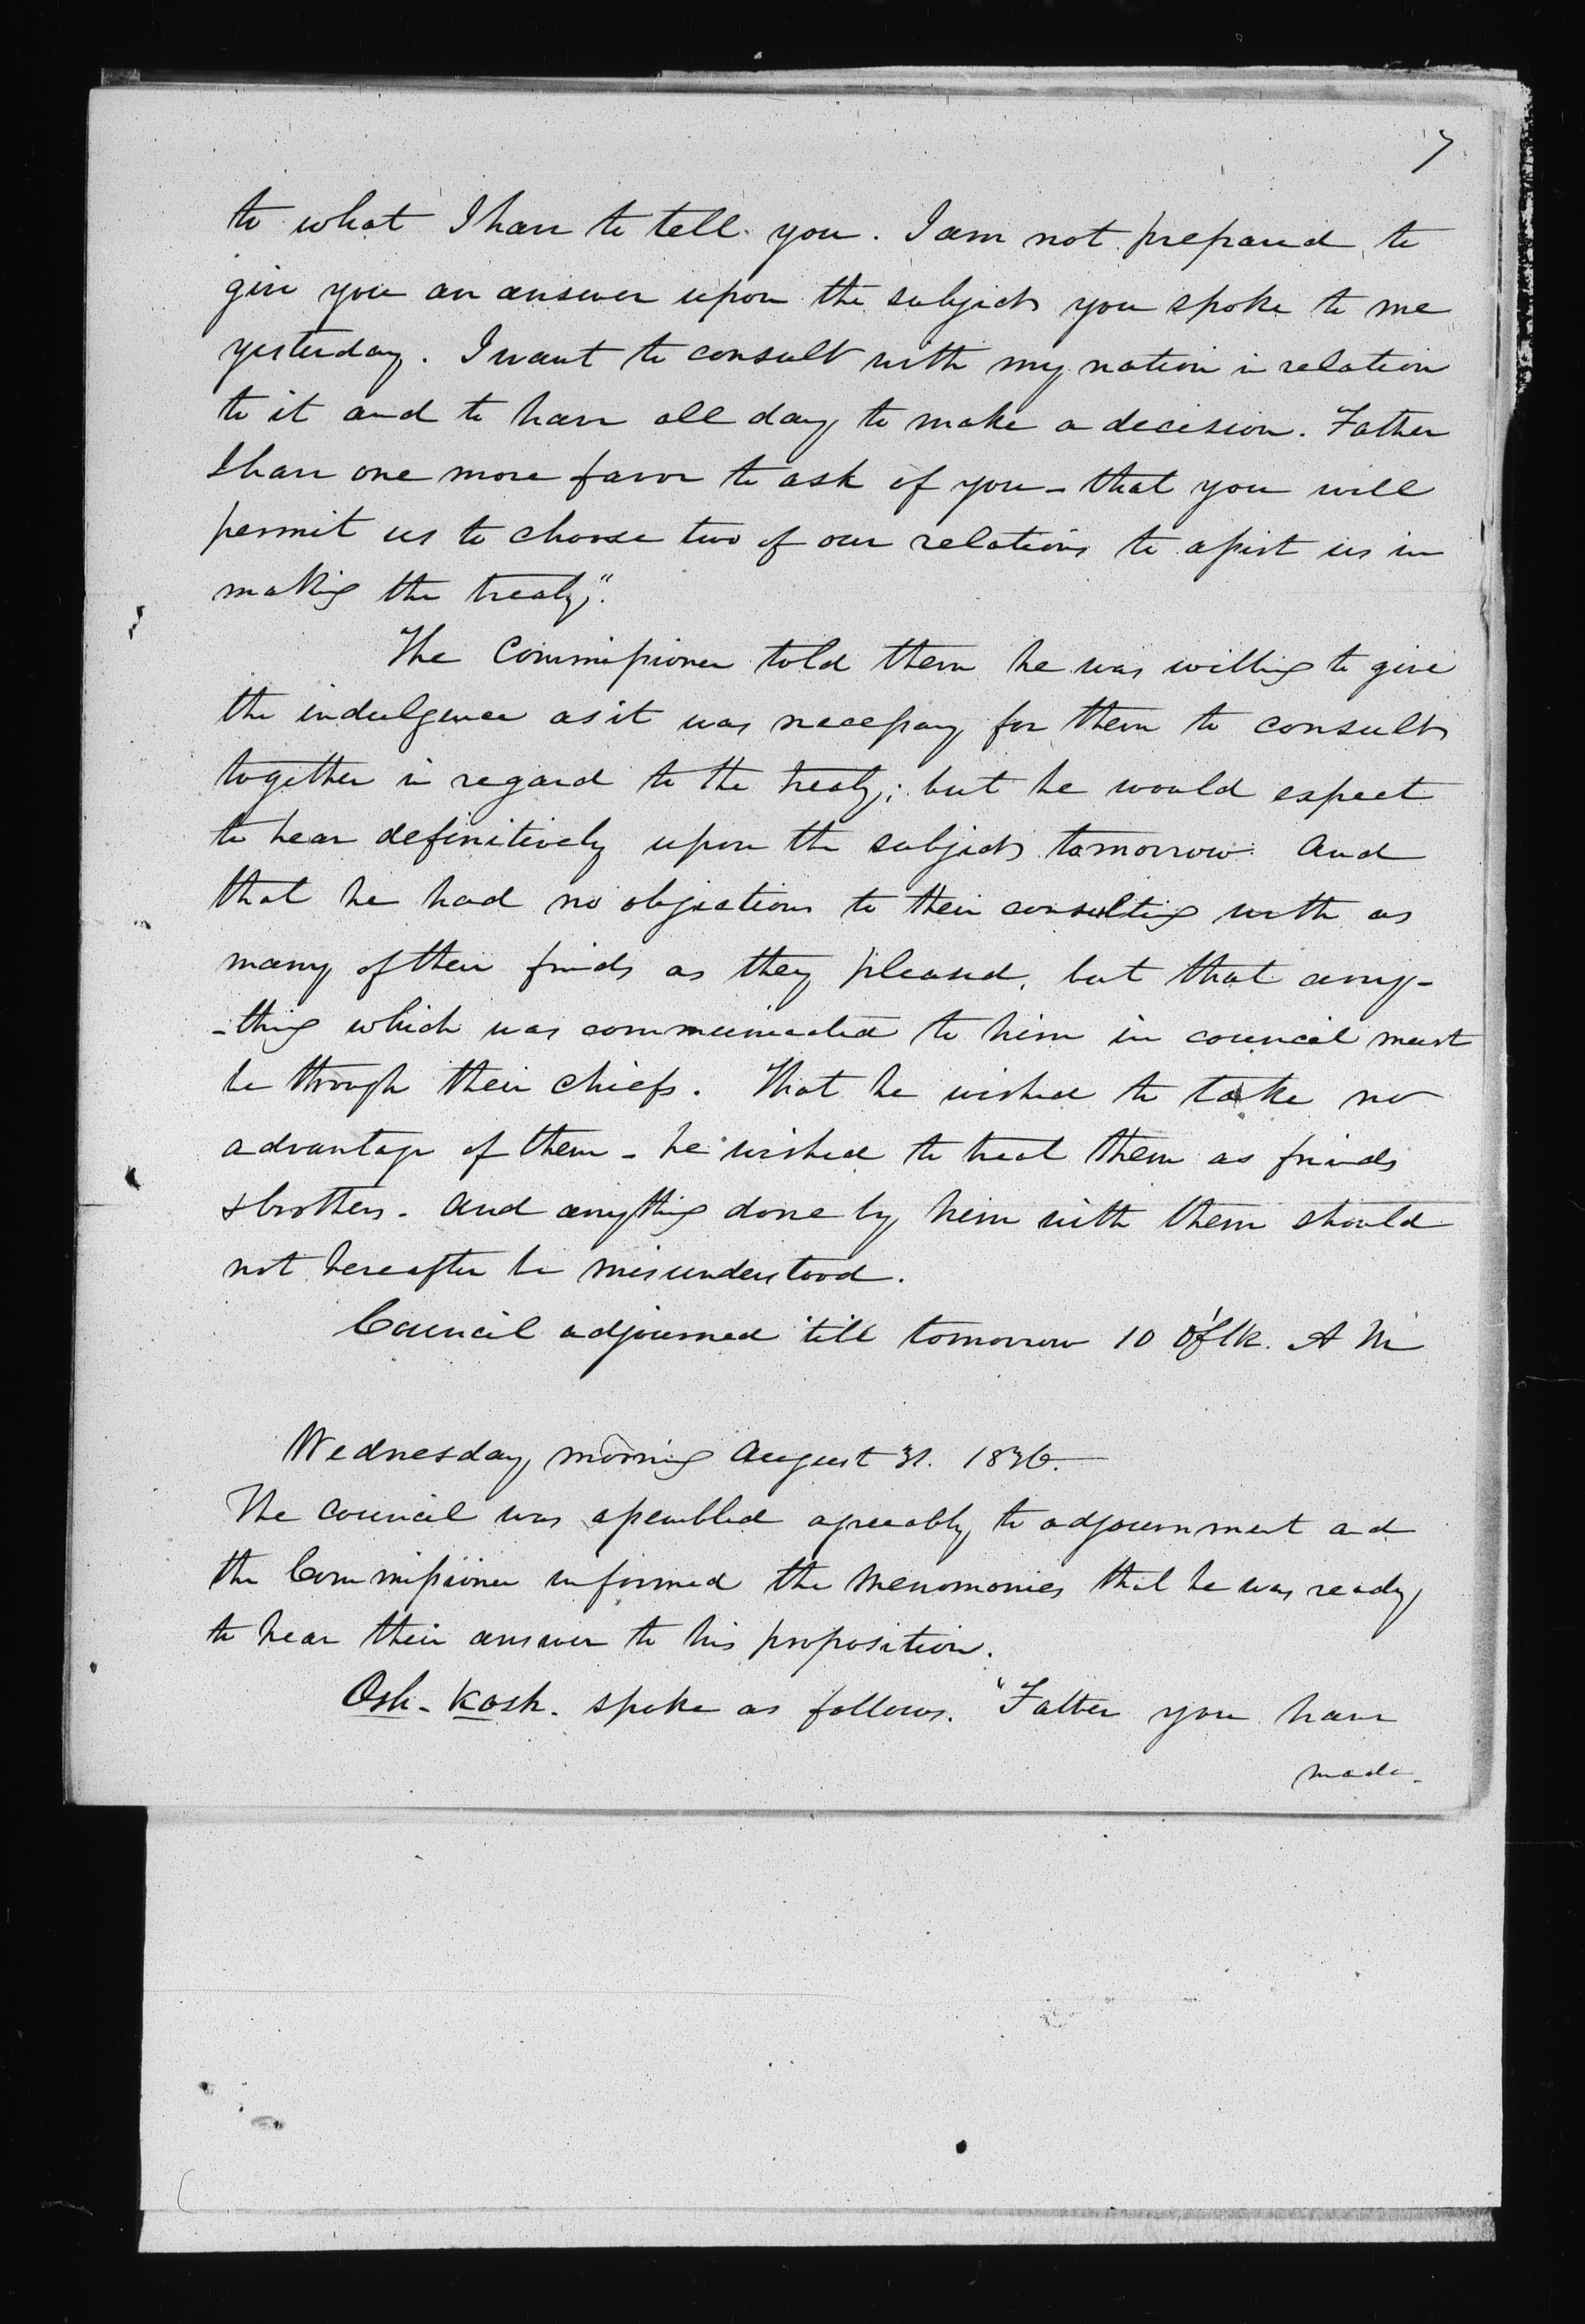 7
to what I have to tell you. I am not prepared to
give you an answer upon the subject you spoke to me
yesterday. I want to consult with my nation in relation
to it and to have all day to make a decision. Father
I have one more favor to ask of you - that you will
permit us to choose two of our relations to assist us in
making the treaty".
The Commissioner told them he was willing to give
the indulgence as it was necessary for them to consult
together in regard to the treaty; but he would expect
to hear definitively upon the subject tomorrow. And
that he had no objections to their consulting with as
many of their friends as they pleased, but that any-
-thing which was communicated to him in council must
be through their chiefs. That he wished to take no
advantage of them - he wished to treat them as friends
& brothers. And anything done by him with them should
not hereafter be misunderstood.
Council adjourned till tomorrow 10 O'Clk. A M
Wednesday morning August 31. 1836.
The council was assembled agreeably to adjournment and
the Commissioner informed the Menomonies that he was ready
to hear their answer to his proposition.
Osh-Kosh. spoke as follows. "Father you have
made.